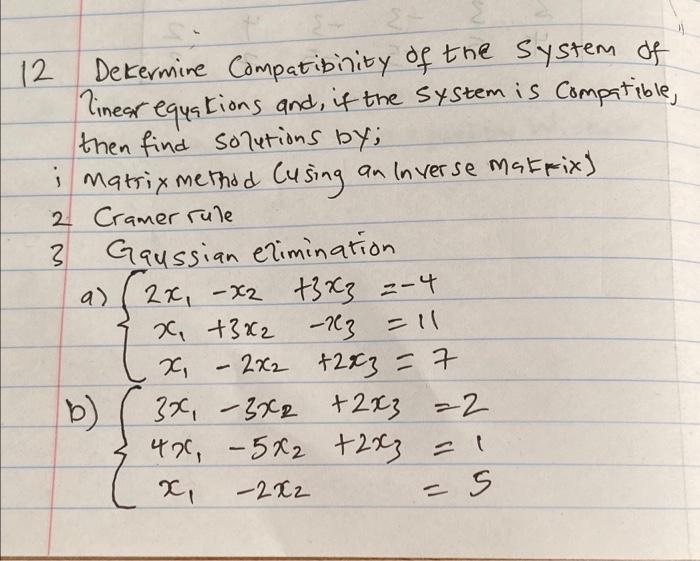 12 Determine Compatibility of the System of
linear equations and, if the system is Compatible,
then find solutions by;
i Matrix method (using an Inverse matrix)
2 Cramer rule
3 Gaussian elimination
a) { 2x₁ -x₂ +3x₃ =-4
x₁ +3x₂ -x₃ = 11
x₁ -2x₂ +2x₃ = 7
b) { 3x₁ -3x₂ +2x₃ =2
4x₁ -5x₂ +2x₃ = 1
x₁ -2x₂ = 5